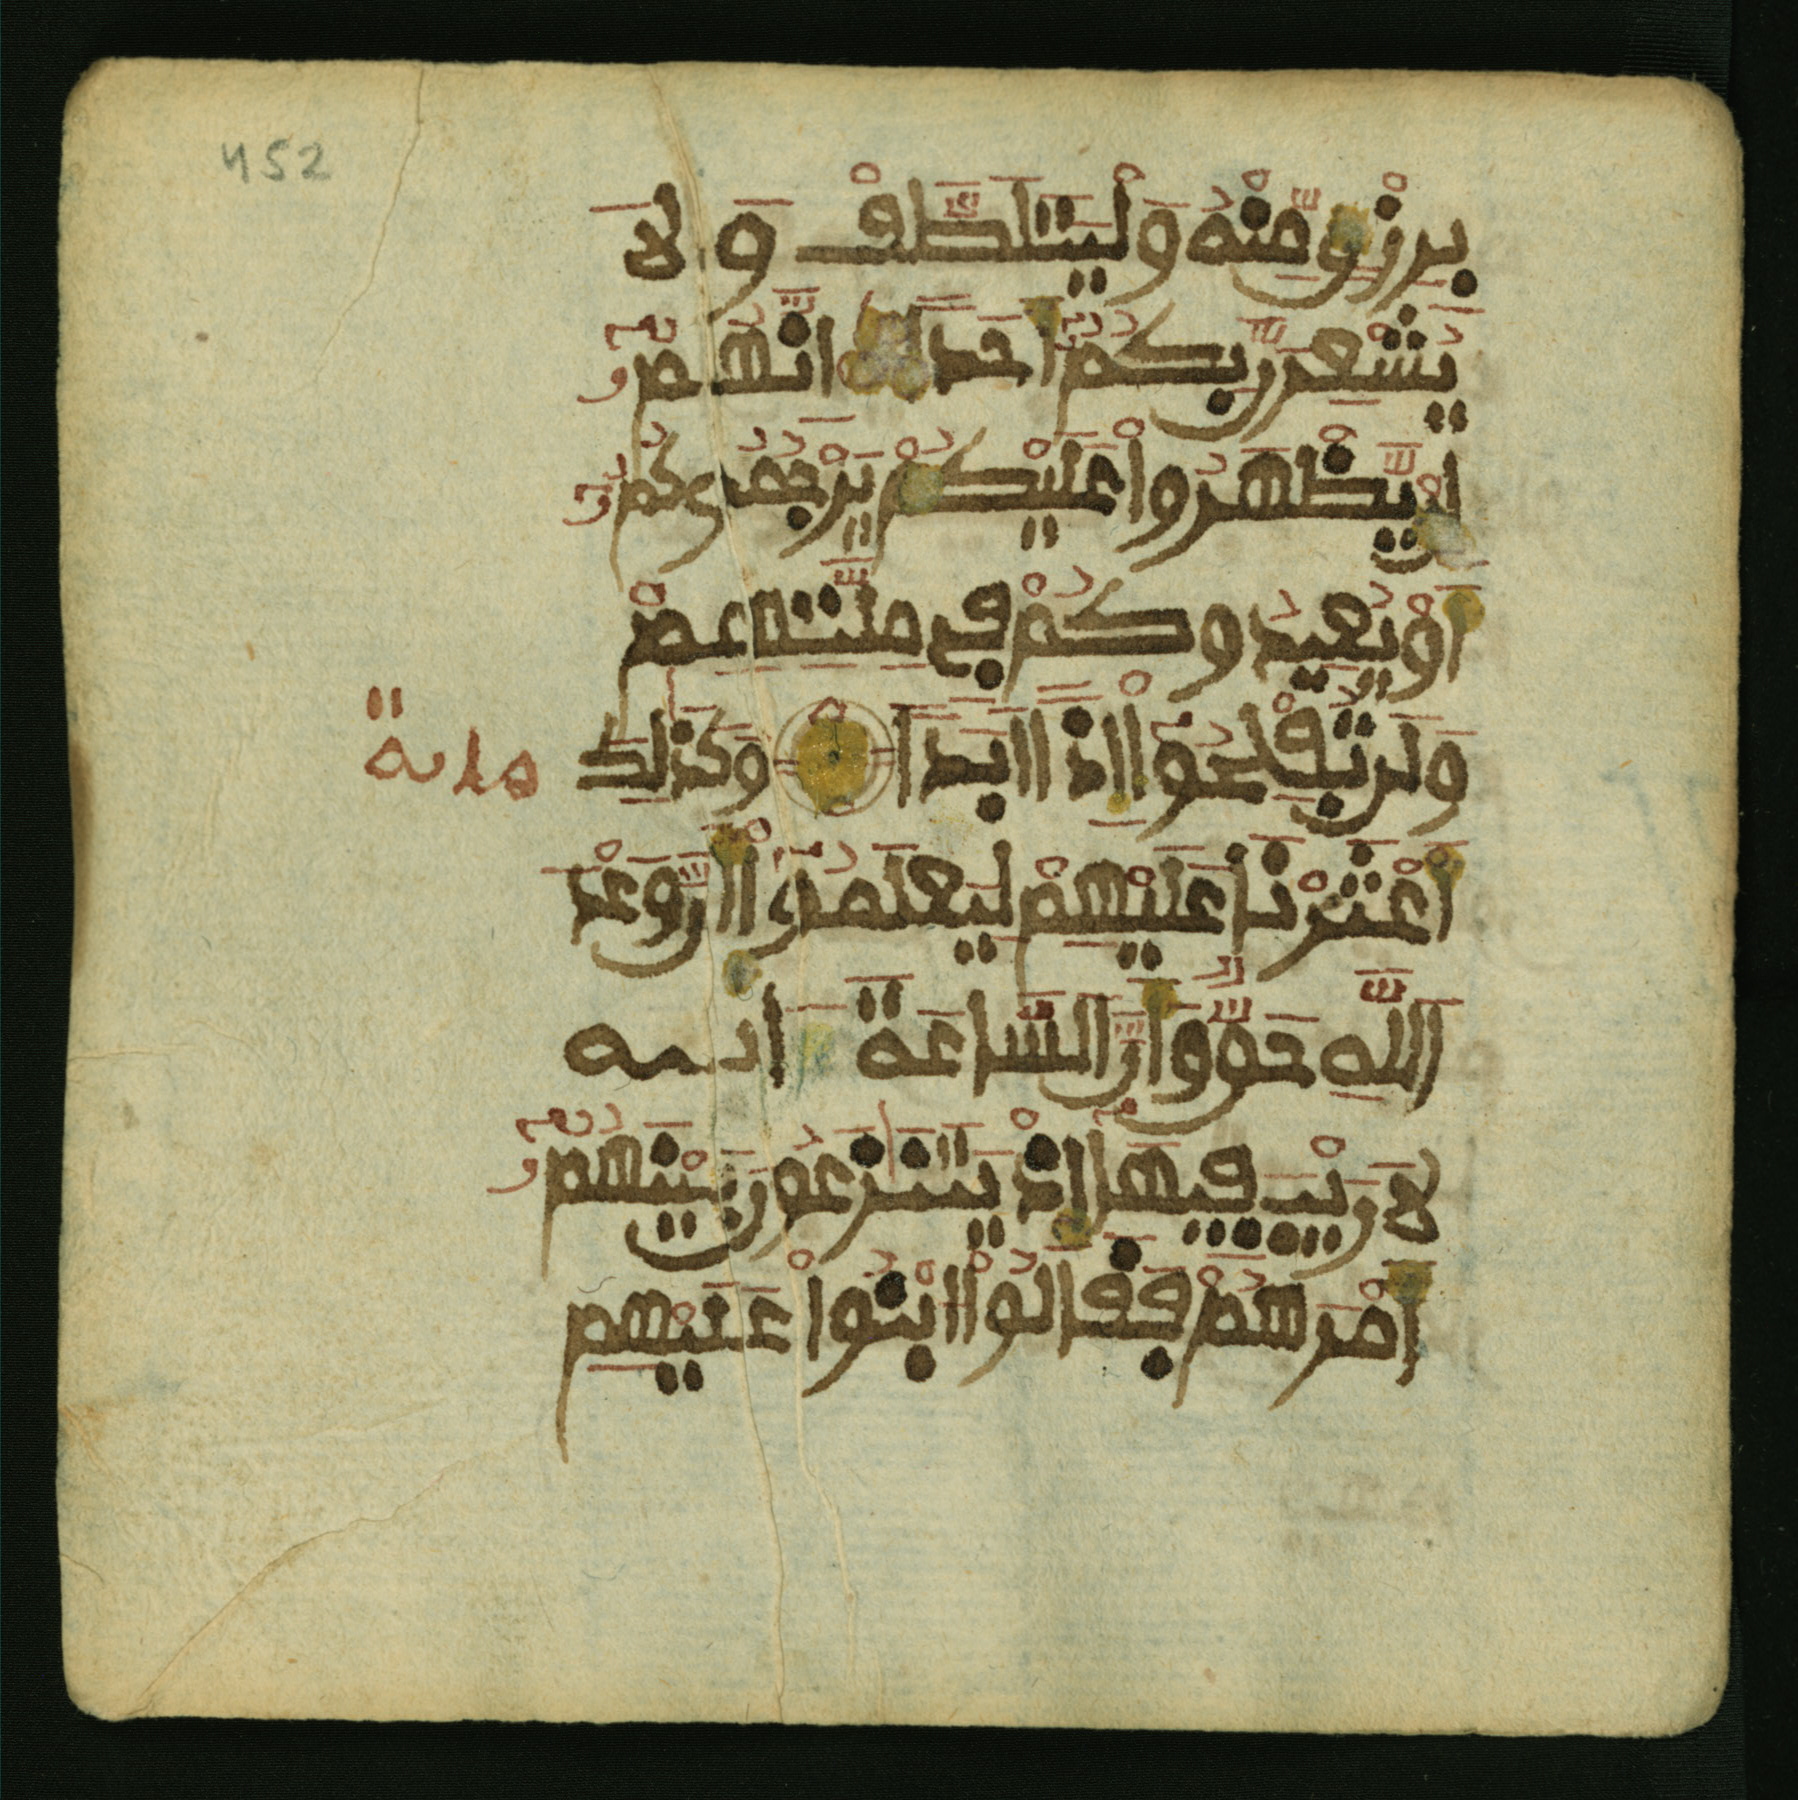 452
برزق منه وليتلطف ولا
يشعرن بكم احدا انهم
ان يظهروا عليكم يرجموكم
او يعيدوكم في ملتهم
ولن تفلحوا اذا ابدا وكذلك
اعثرنا عليهم ليعلموا ان وعد
الله حق وان الساعة
لا ريب فيها اذ يتنزعون بينهم
امرهم فقالوا ابنوا عليهم